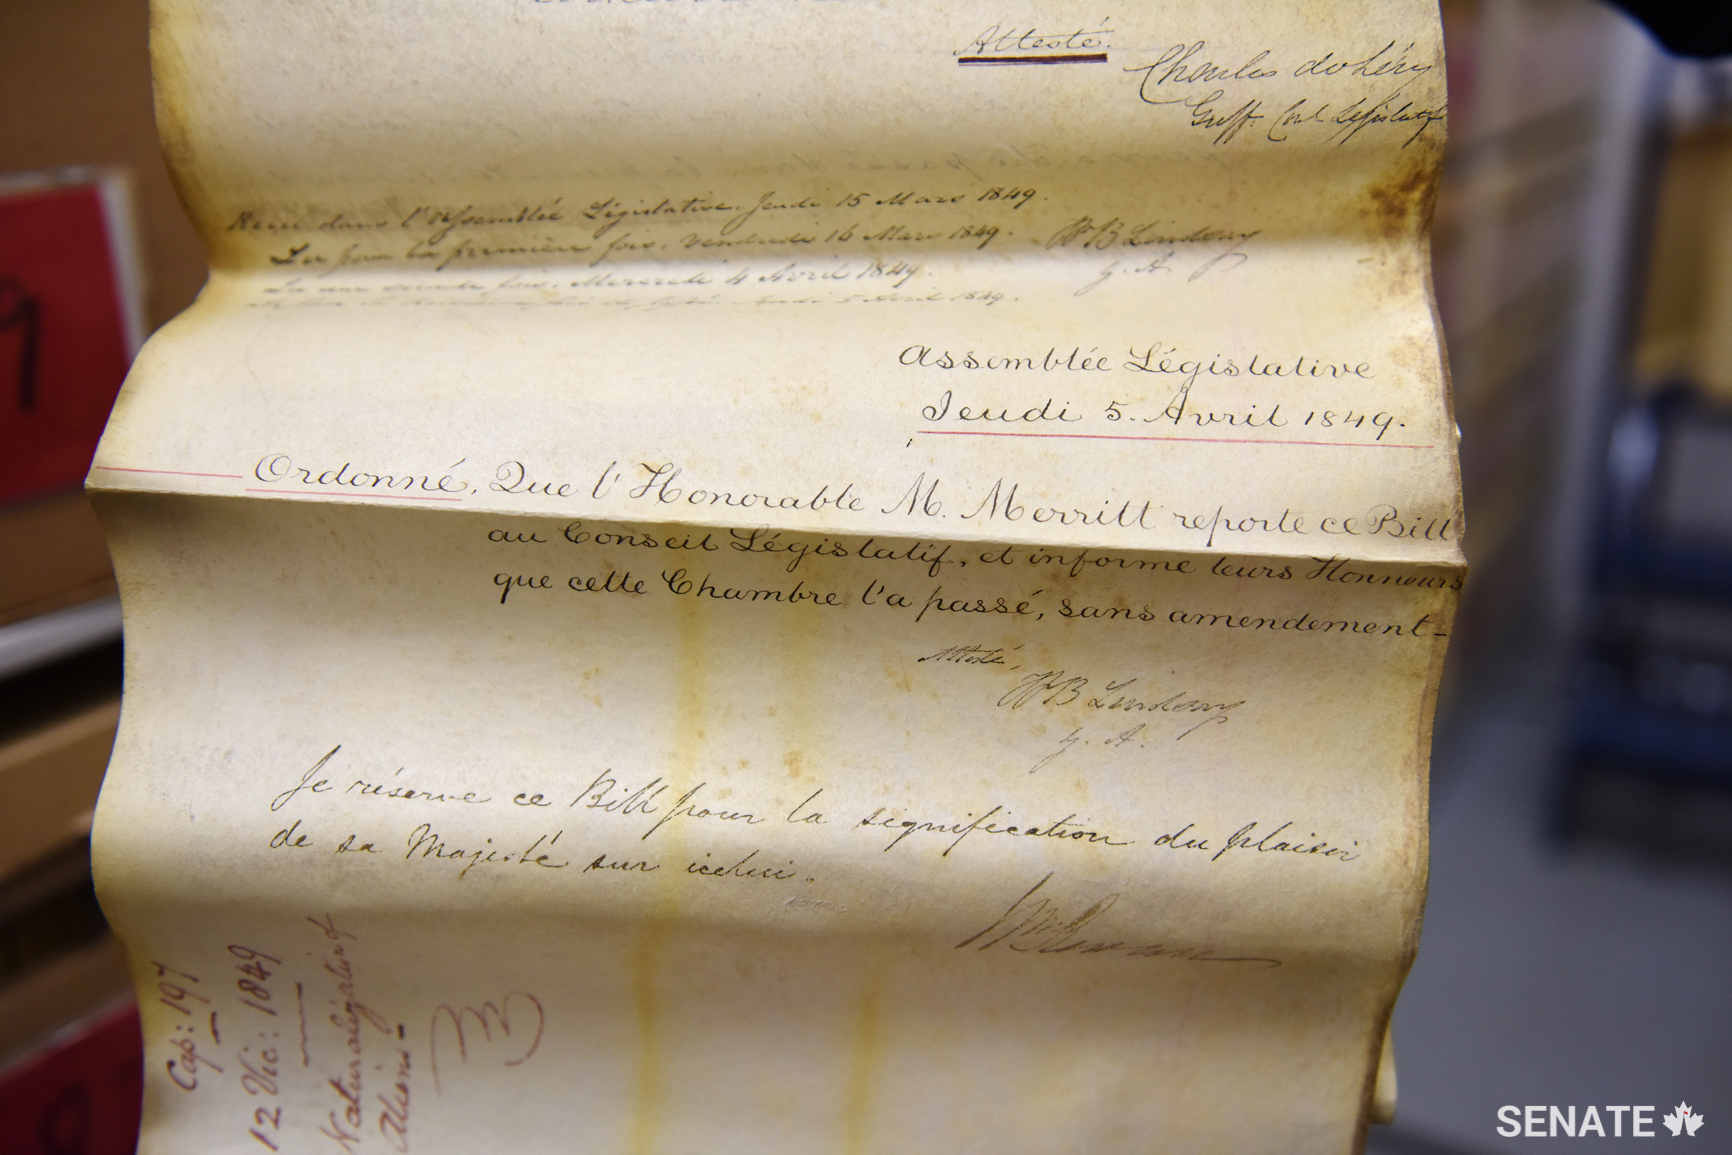 Attesté.
Charles de Léry
Greff. Con. Législatif
Reçu dans l'Assemblée Législative. Jeudi 15 Mars 1849.
Lu pour la première fois. Vendredi 16 Mars 1849.
WB Lindsay
G. A.
Lu une seconde fois. Mercredi 4 Avril 1849.
Jeudi 5 Avril 1849.
Assemblée Législative
Jeudi 5. Avril 1849.
Ordonné, Que l'Honorable M. Merritt reporte ce Bill
au Conseil Législatif, et informe leurs Honneurs
que cette Chambre l'a passé, sans amendement-
Attesté,
WB Lindsay
G. A.
Je réserve ce Bill pour la signification du plaisir
de sa Majesté sur icelui.
Cap: 197
12 Vic: 1849
Naturalization of
Aliens-
9
SENATE